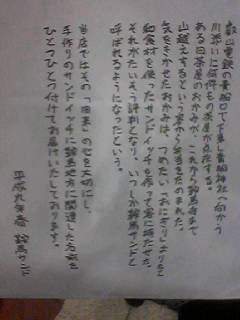 叡山電鉄の貴船口で下車し貴船神社へ向かう
川沿いに何件もの茶屋が点在する。
ある日茶屋のおかみが、これから鞍馬寺まで
山越えするという客から弁当をたのまれた。
気をきかせたおかみは、つめたい「おにぎり」よりもと
和食材を使ったサンドイッチを作って客に持たせた。
それが大いそう評判となり、いつしか鞍馬サンドと
呼ばれるようになったという。
当店ではその「由来」の心を大切にし、
手作りのサンドイッチに鞍馬地方に関連した名前を
ひとつひとつ付けてお届けいたしております。
平成九年春 鞍馬サンド